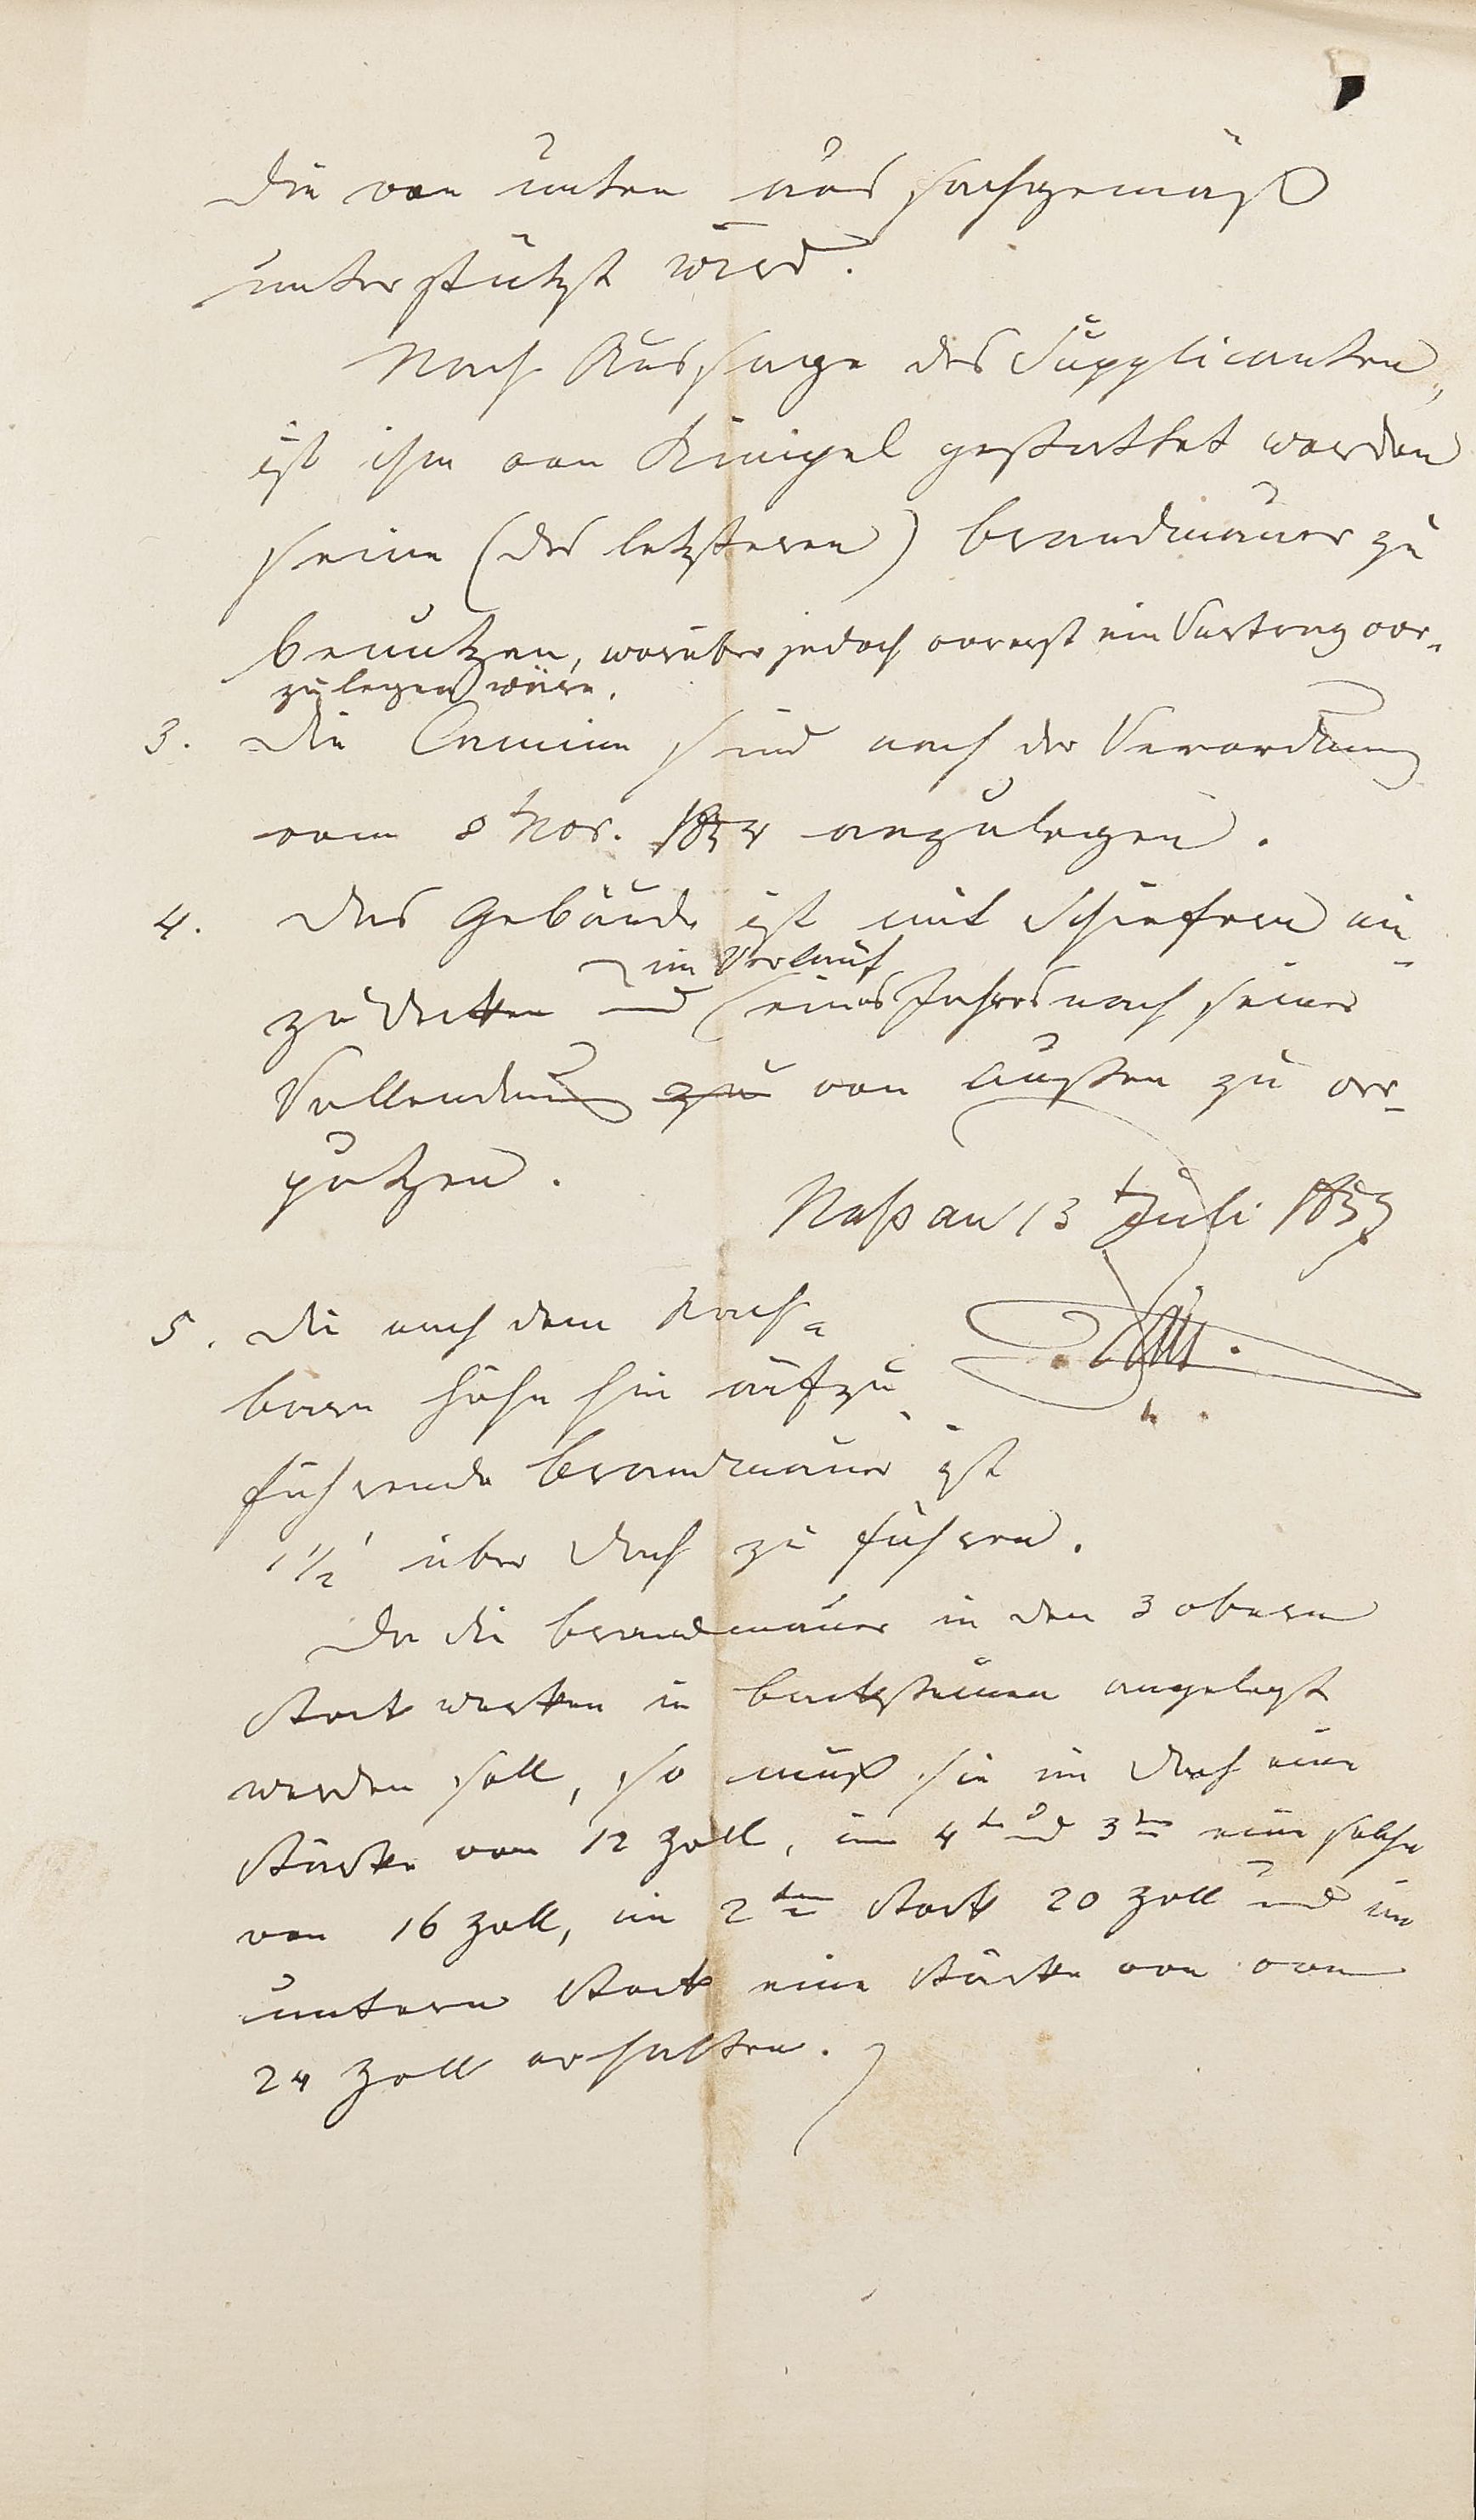 die von unten aus sachgemäß
unterstützt wird.
Nach Aussage des Supplicanten,
ist ihm von Kunigel gestattet worden
seine (des letzteren) Brandmauer zu
benutzen, worüber jedoch vorerst ein Vertrag vor-
zulegen wäre.
3. Die Camine sind nach der Verordnung
vom 8t Nov. anzulegen.
4. Das Gebäude ist mit Schiefern ein-
im Verlauf
zudecken und eines Jahres nach seiner
Vollendung zu von außen zu ver-
putzen.
Nassau 13t Juli
5. Die nach dem Nach-
barn Höhn hin aufzu-
führende Brandmauer ist
1 1/2' über Dach zu führen.
Da die Brandmauer in den 3 obern
Stockwerken in Backsteinen angelegt
werden soll, so muß sie im Dach eine
Stärke von 12 Zoll, im 4ten und 3ten eine solche
von 16 Zoll, im 2ten Stock 20 Zoll und im
untern Stock eine Stärke von von
24 Zoll erhalten.